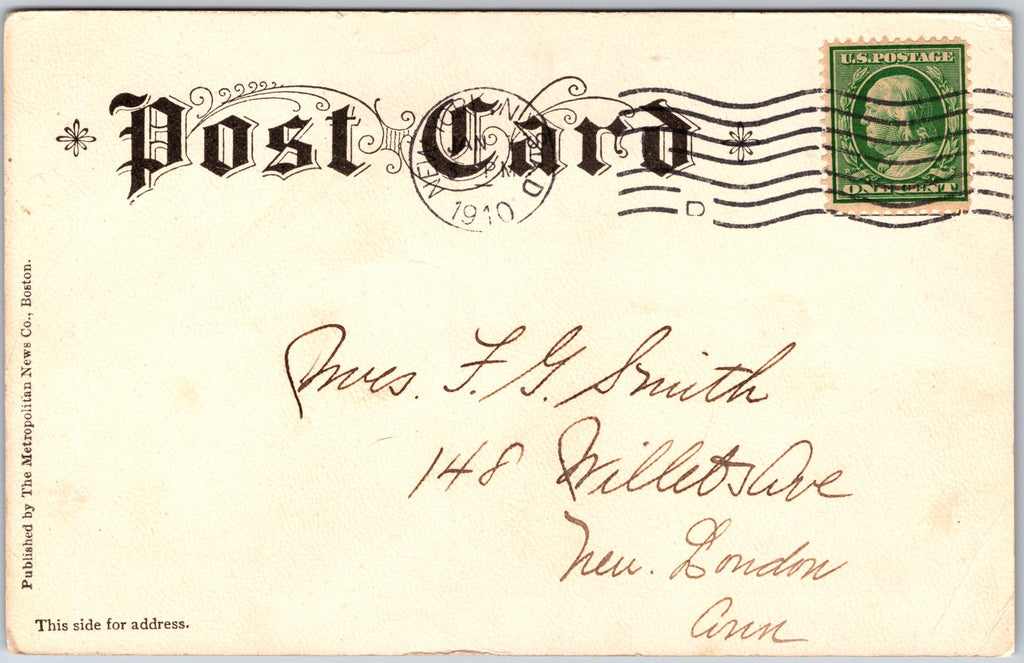 Post Card
U.S. POSTAGE
ONE CENT
PM
1910
D
Mrs. F. G. Smith
148 Willets Ave
New London
Conn
Published by The Metropolitan News Co., Boston.
This side for address.